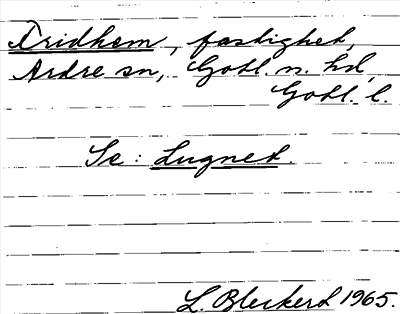 Fridhem, fastighet,
Ardre sn, Gotl. n. hd,
Gotl. l.
Se: Lugnet.
L. Bleckerd 1965.